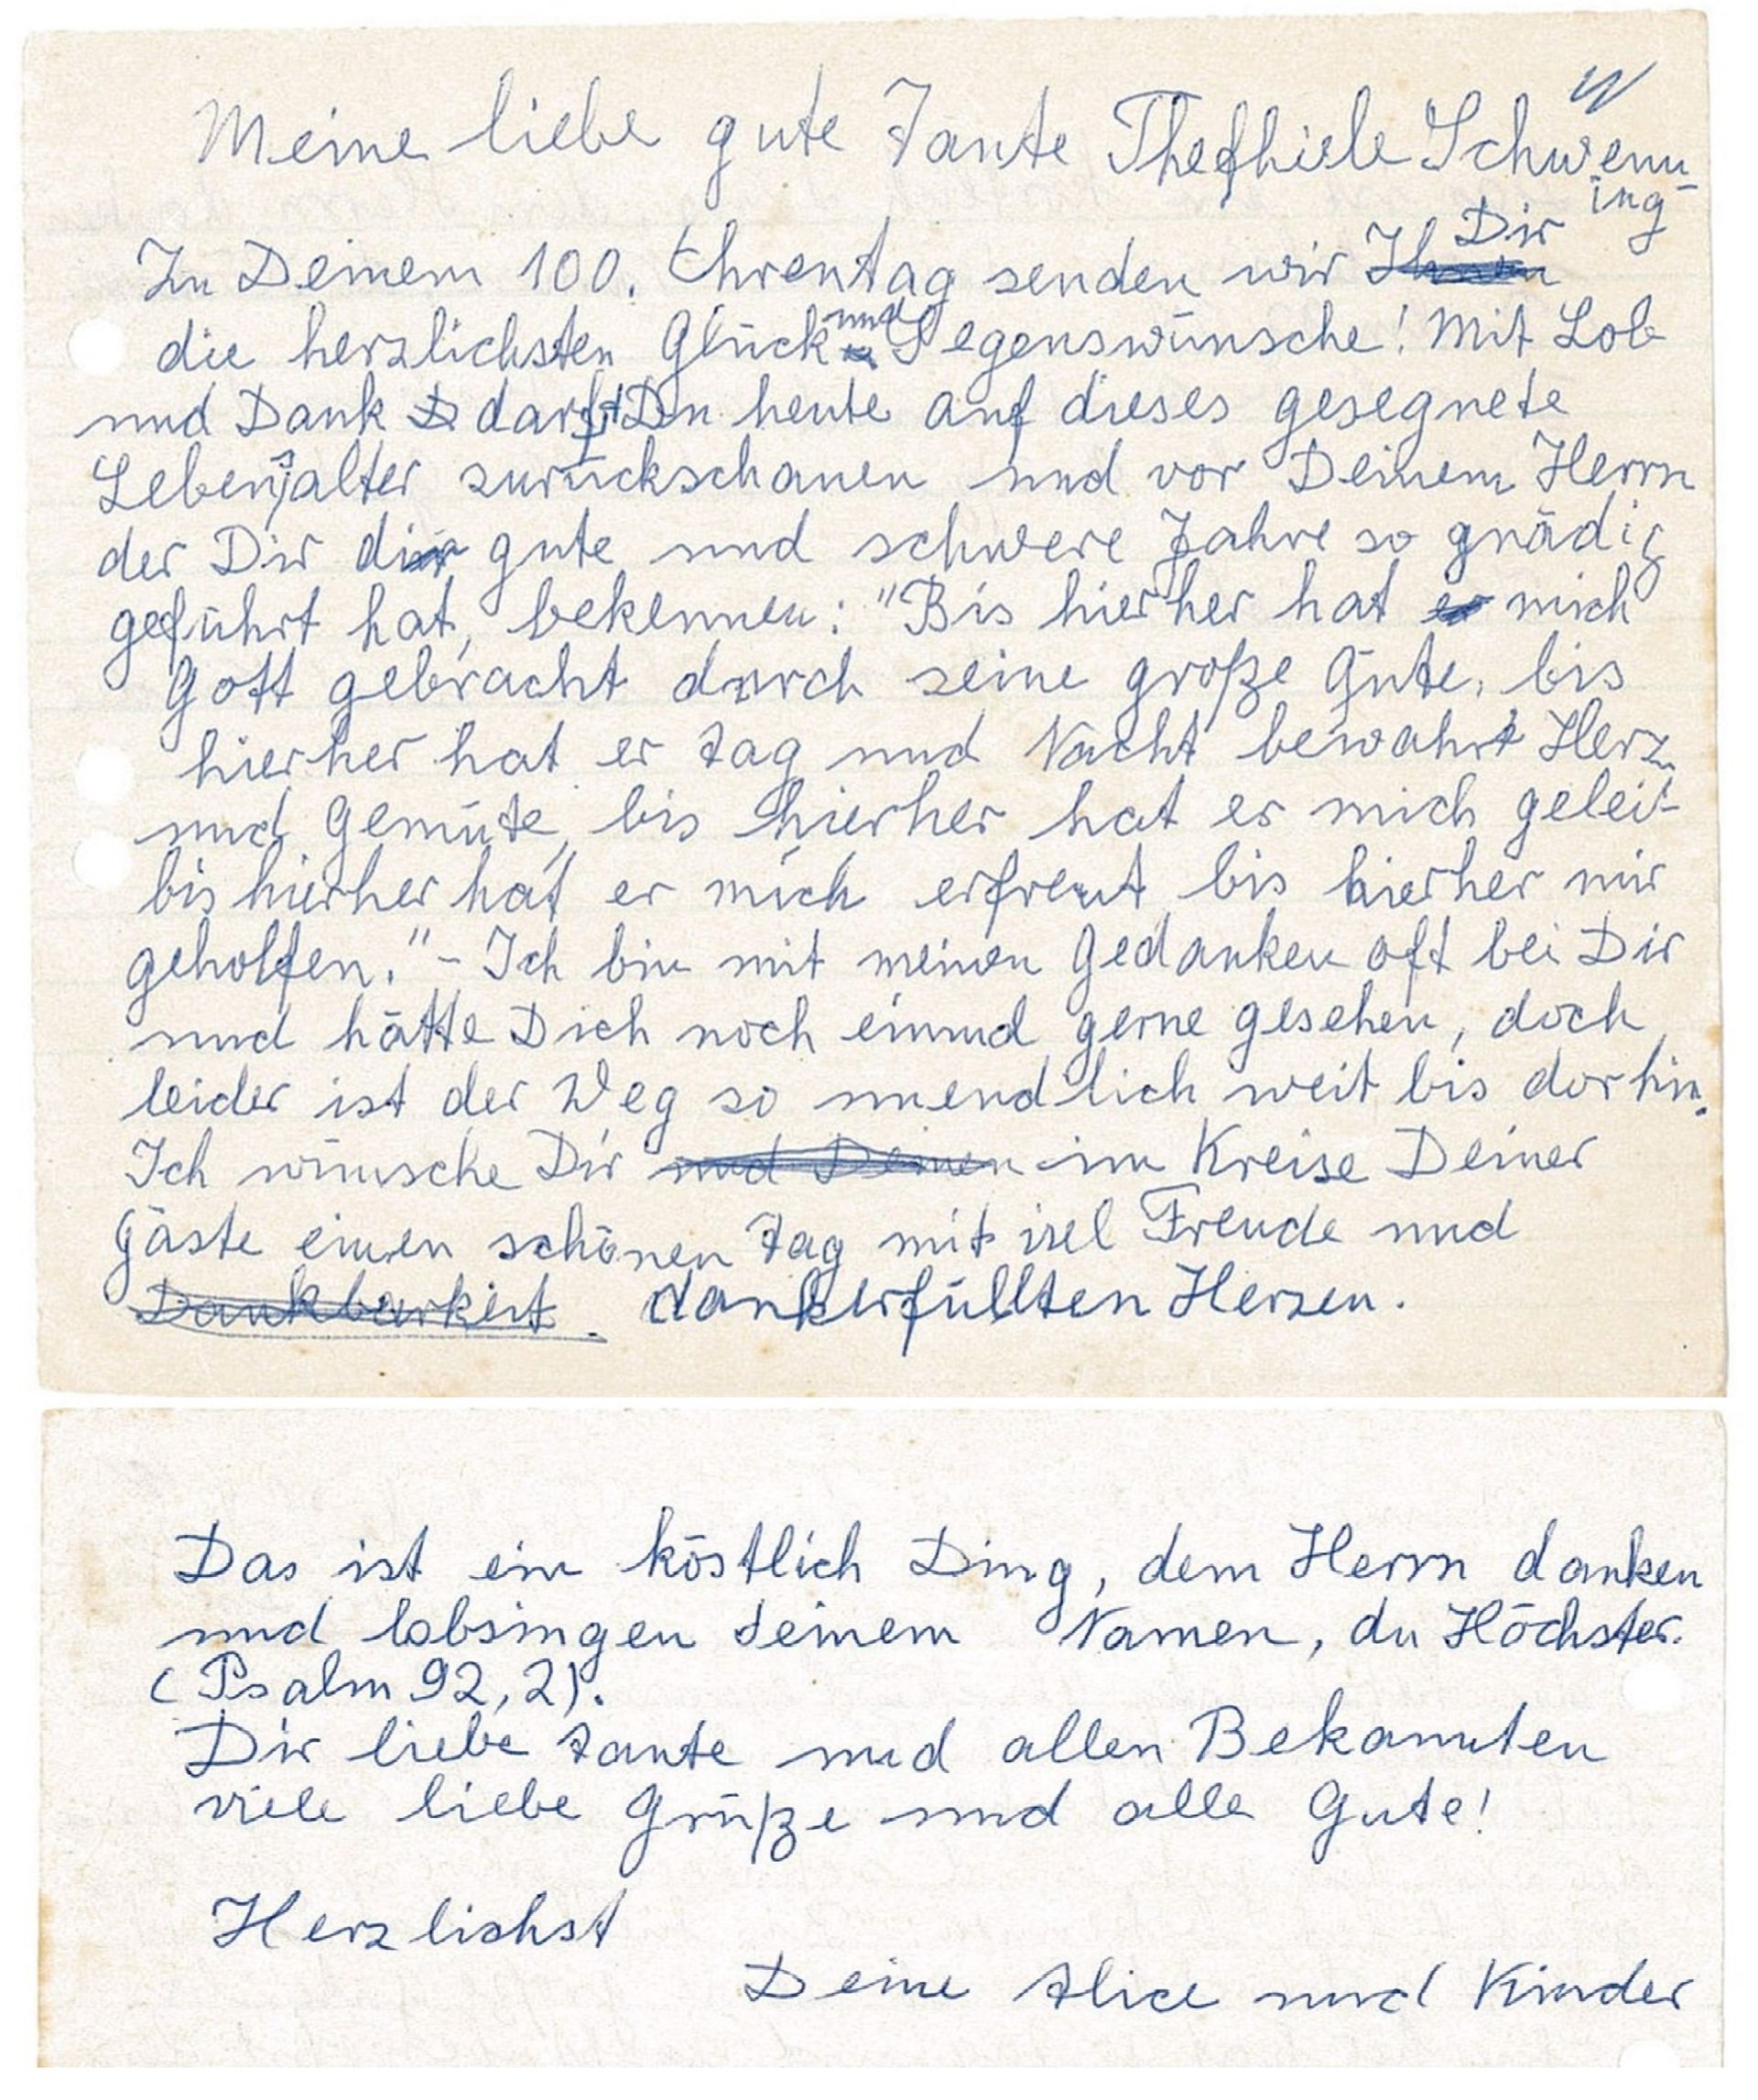 Meine liebe gute Tante Schwenn-
ing
Zu Deinem 100. Ehrentag senden wir Dir
die herzlichsten Glück und Segenswünsche! Mit Lob
und Dank darfst Du heute auf dieses gesegnete
Lebensalter zurückschauen und vor Deinem Herrn
der Dir gute und schwere Jahre so gnädig
geführt hat, bekennen: "Bis hierher hat mich
Gott gebracht durch seine große Güte, bis
hierher hat er Tag und Nacht bewahrt Herz
und Gemüte, bis hierher hat er mich geleit
bis hierher hat er mich erfreut bis hierher mir
geholfen." - Ich bin mit meinen Gedanken oft bei Dir
und hätte Dich noch gerne gesehen, doch
leider ist der Weg so unendlich weit bis dorthin.
Ich wünsche Dir im Kreise Deiner
Gäste einen schönen Tag mit viel Freude und
dankerfüllten Herzen.
Das ist ein köstlich Ding, dem Herrn danken
und lobsingen deinem Namen, du Höchster.
(Psalm 92,2).
Dir liebe Tante und allen Bekannten
viele liebe Grüße und alle Gute!
Herzlichst
Deine Alice und Kinder